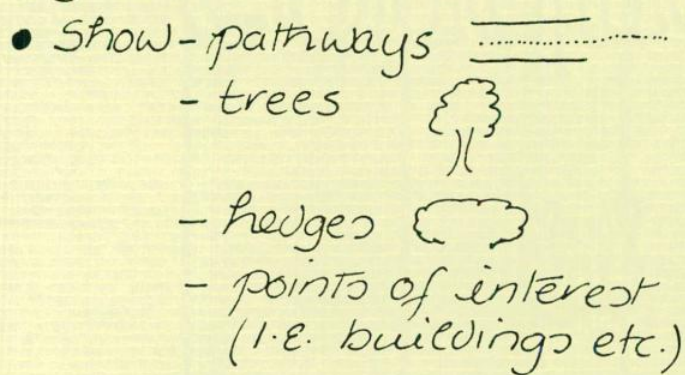 • Show - pathways
- trees
- hedges
- points of interest
(I.E. buildings etc.)